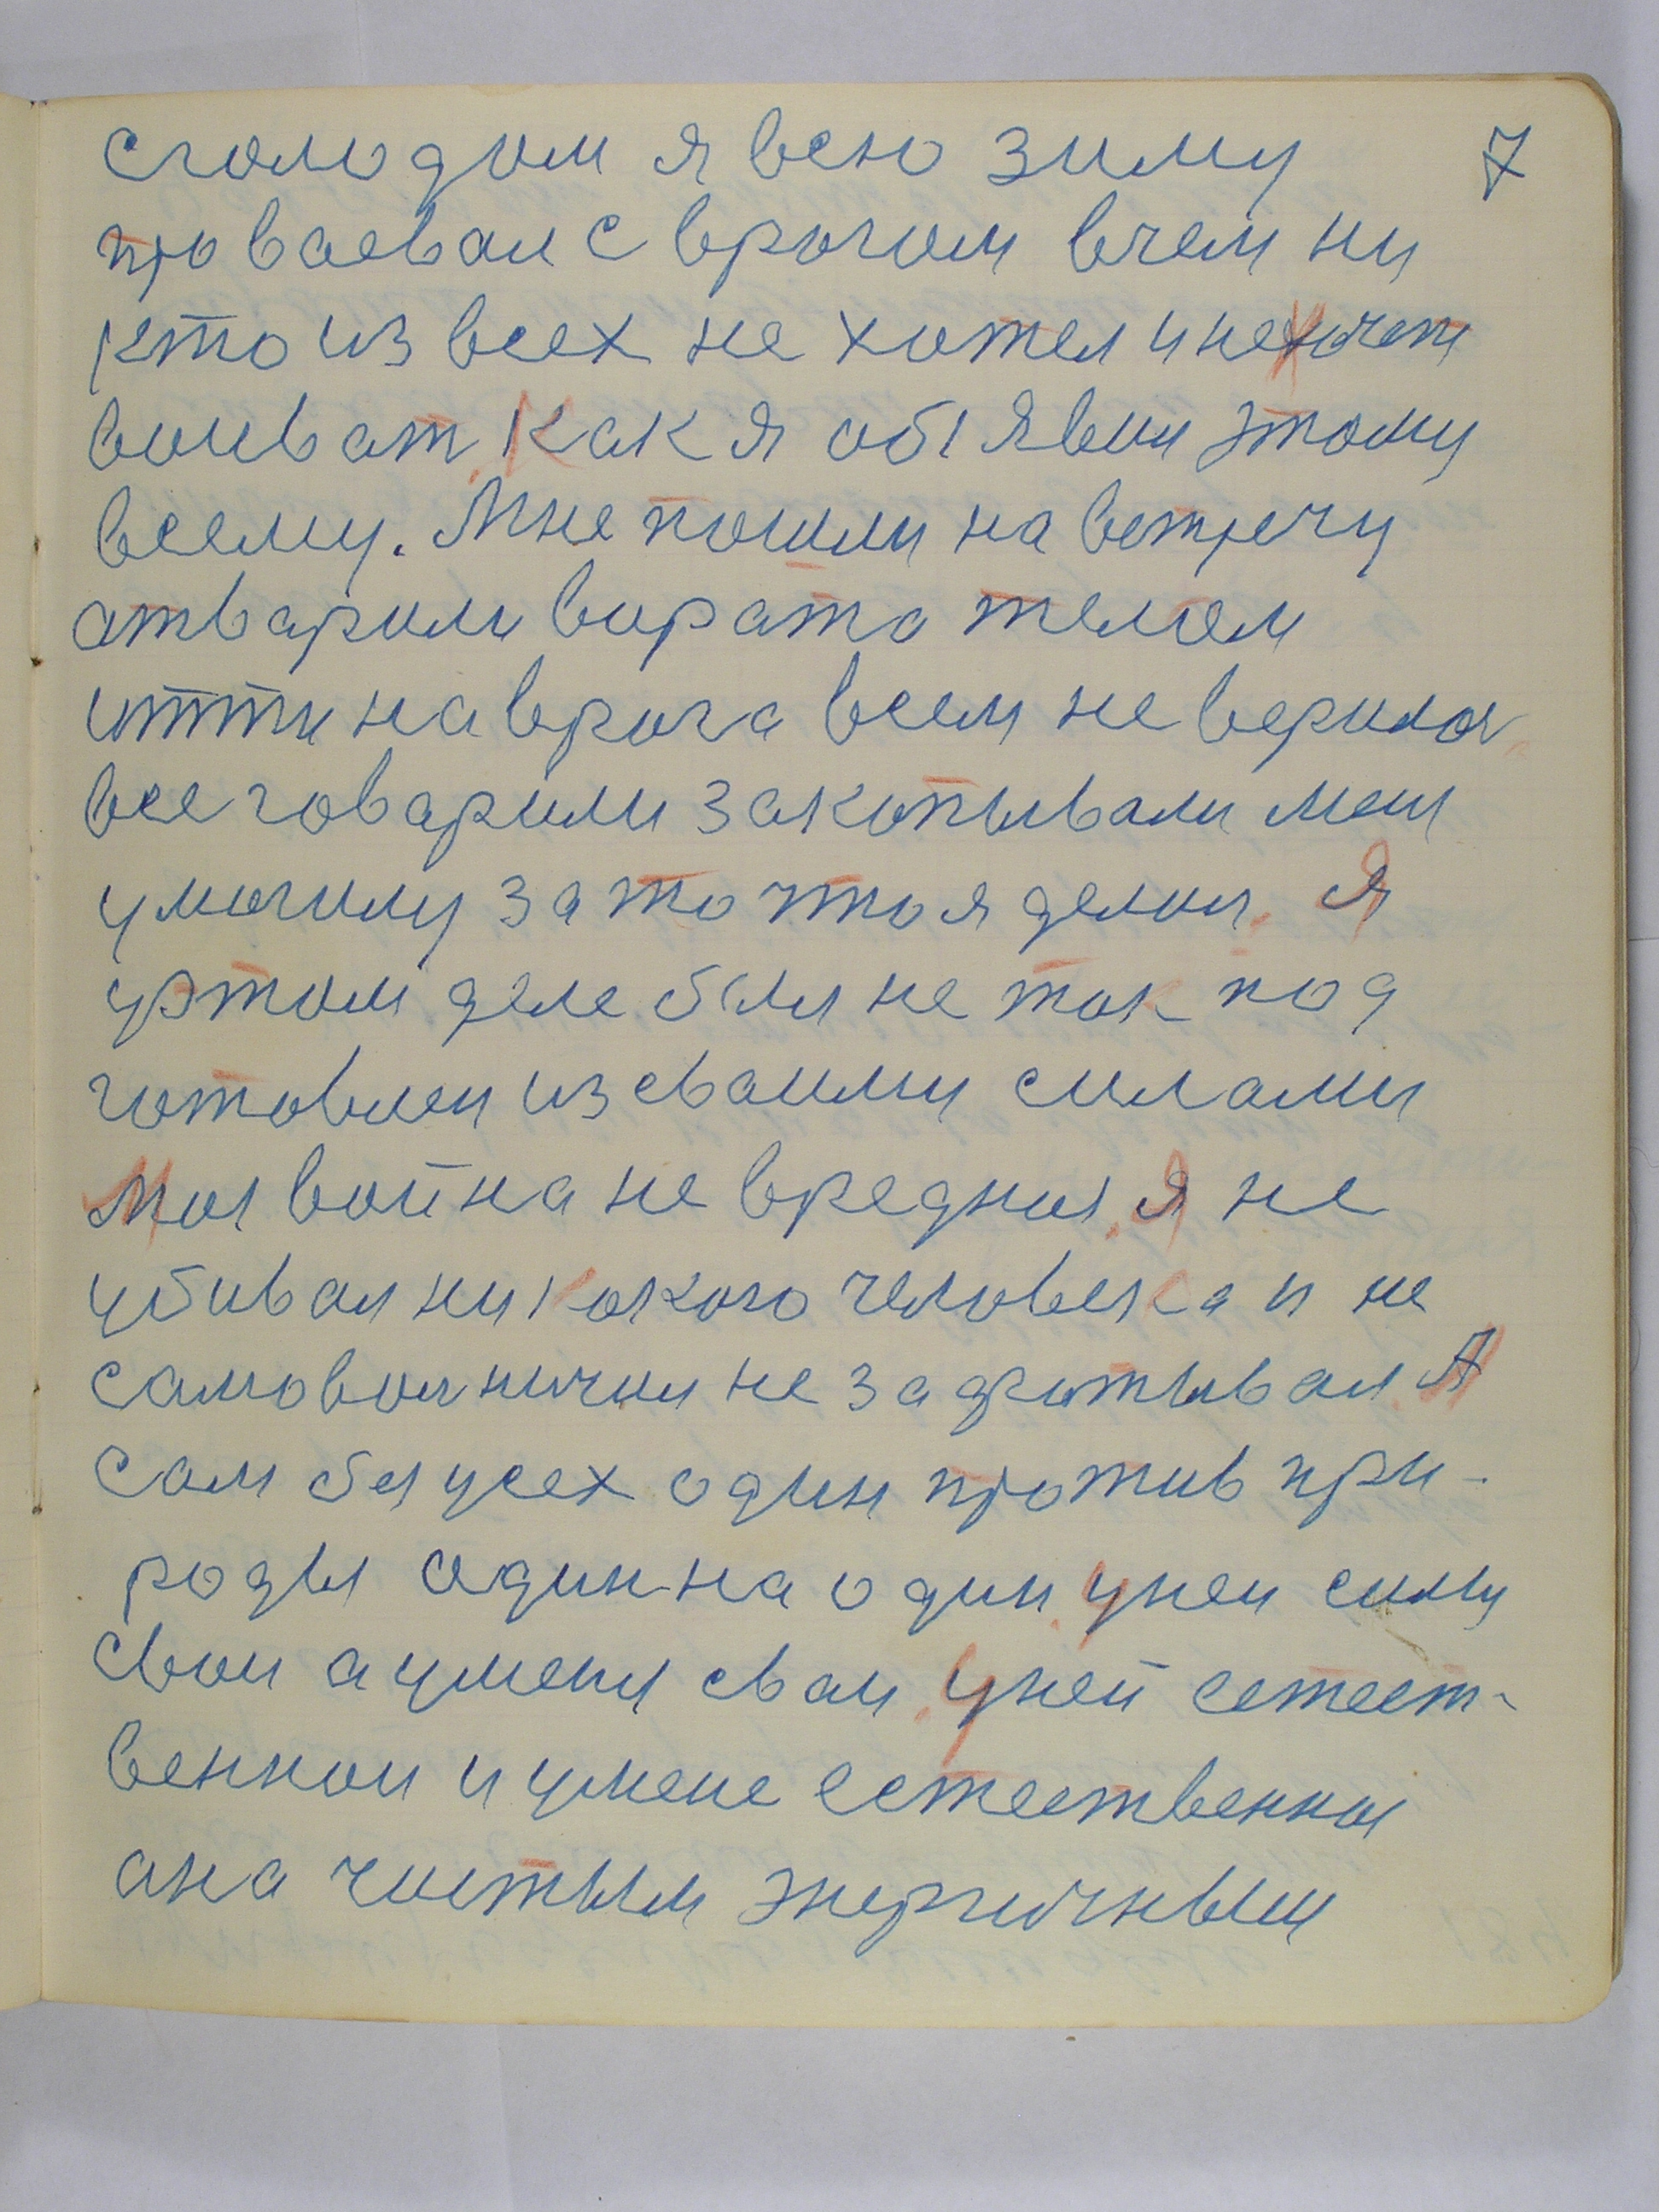 сголодом я всю зиму 7
проваевал с врогом вчем ни
кто из всех не хотел и нехочет
воиват. Как я обі явил этому
всему. Мне пошли на встречу
атварили вората телом
итти на врога всем не верилос.
все говарили закопывали мен
у могилу за то что я делил. Я
уэтом деле был не так под
готовлен из сваими силами
Моя война не вредная. Я не
убивал ни какого человека и не
самовол ничил не захватывал. А
сам был усех один против при-
роды один на один. Уней силы
свои а уменя сваи. Уней естест-
венной и умене естественная
ана чистым энергичным